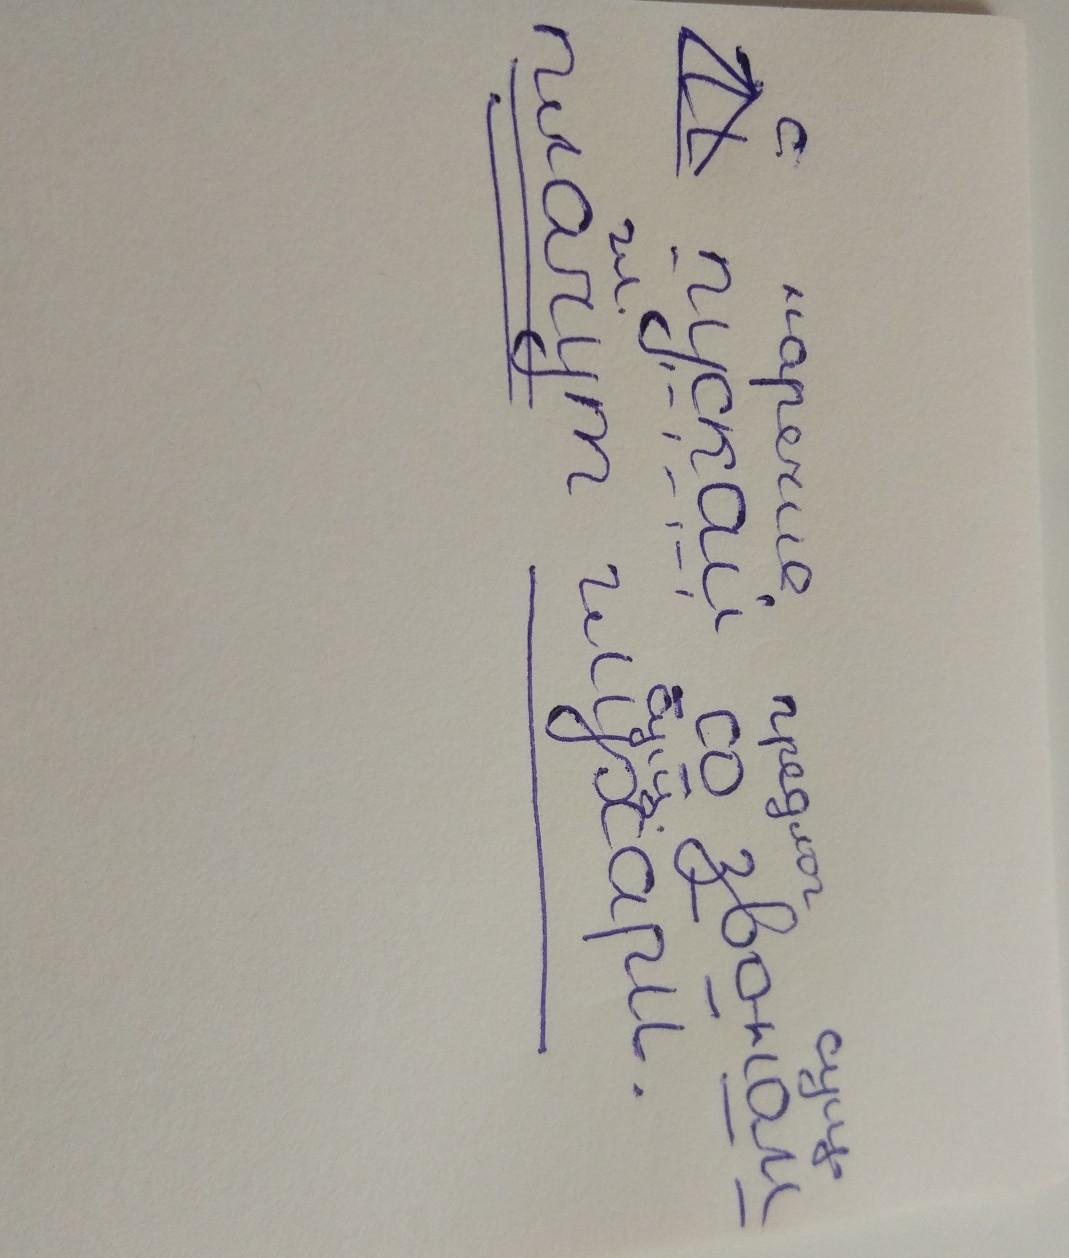 с наречие предлог сущ
пускай со звонам
гл. сущ.
плачут глухари.